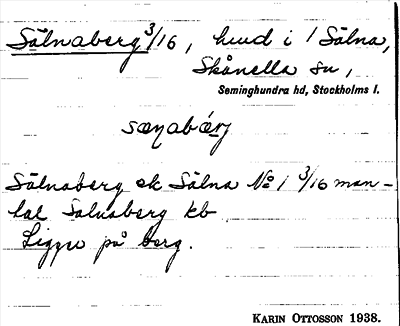 Sälnaberg 3/16, hmd i 1 Sälna,
Skånella sn,
Seminghundra hd, Stockholms l.
Sälnaberg ek Sälna No 1 3/16 man-
tal Salnaberg kb
Ligger på berg.
KARIN OTTOSSON 1938.